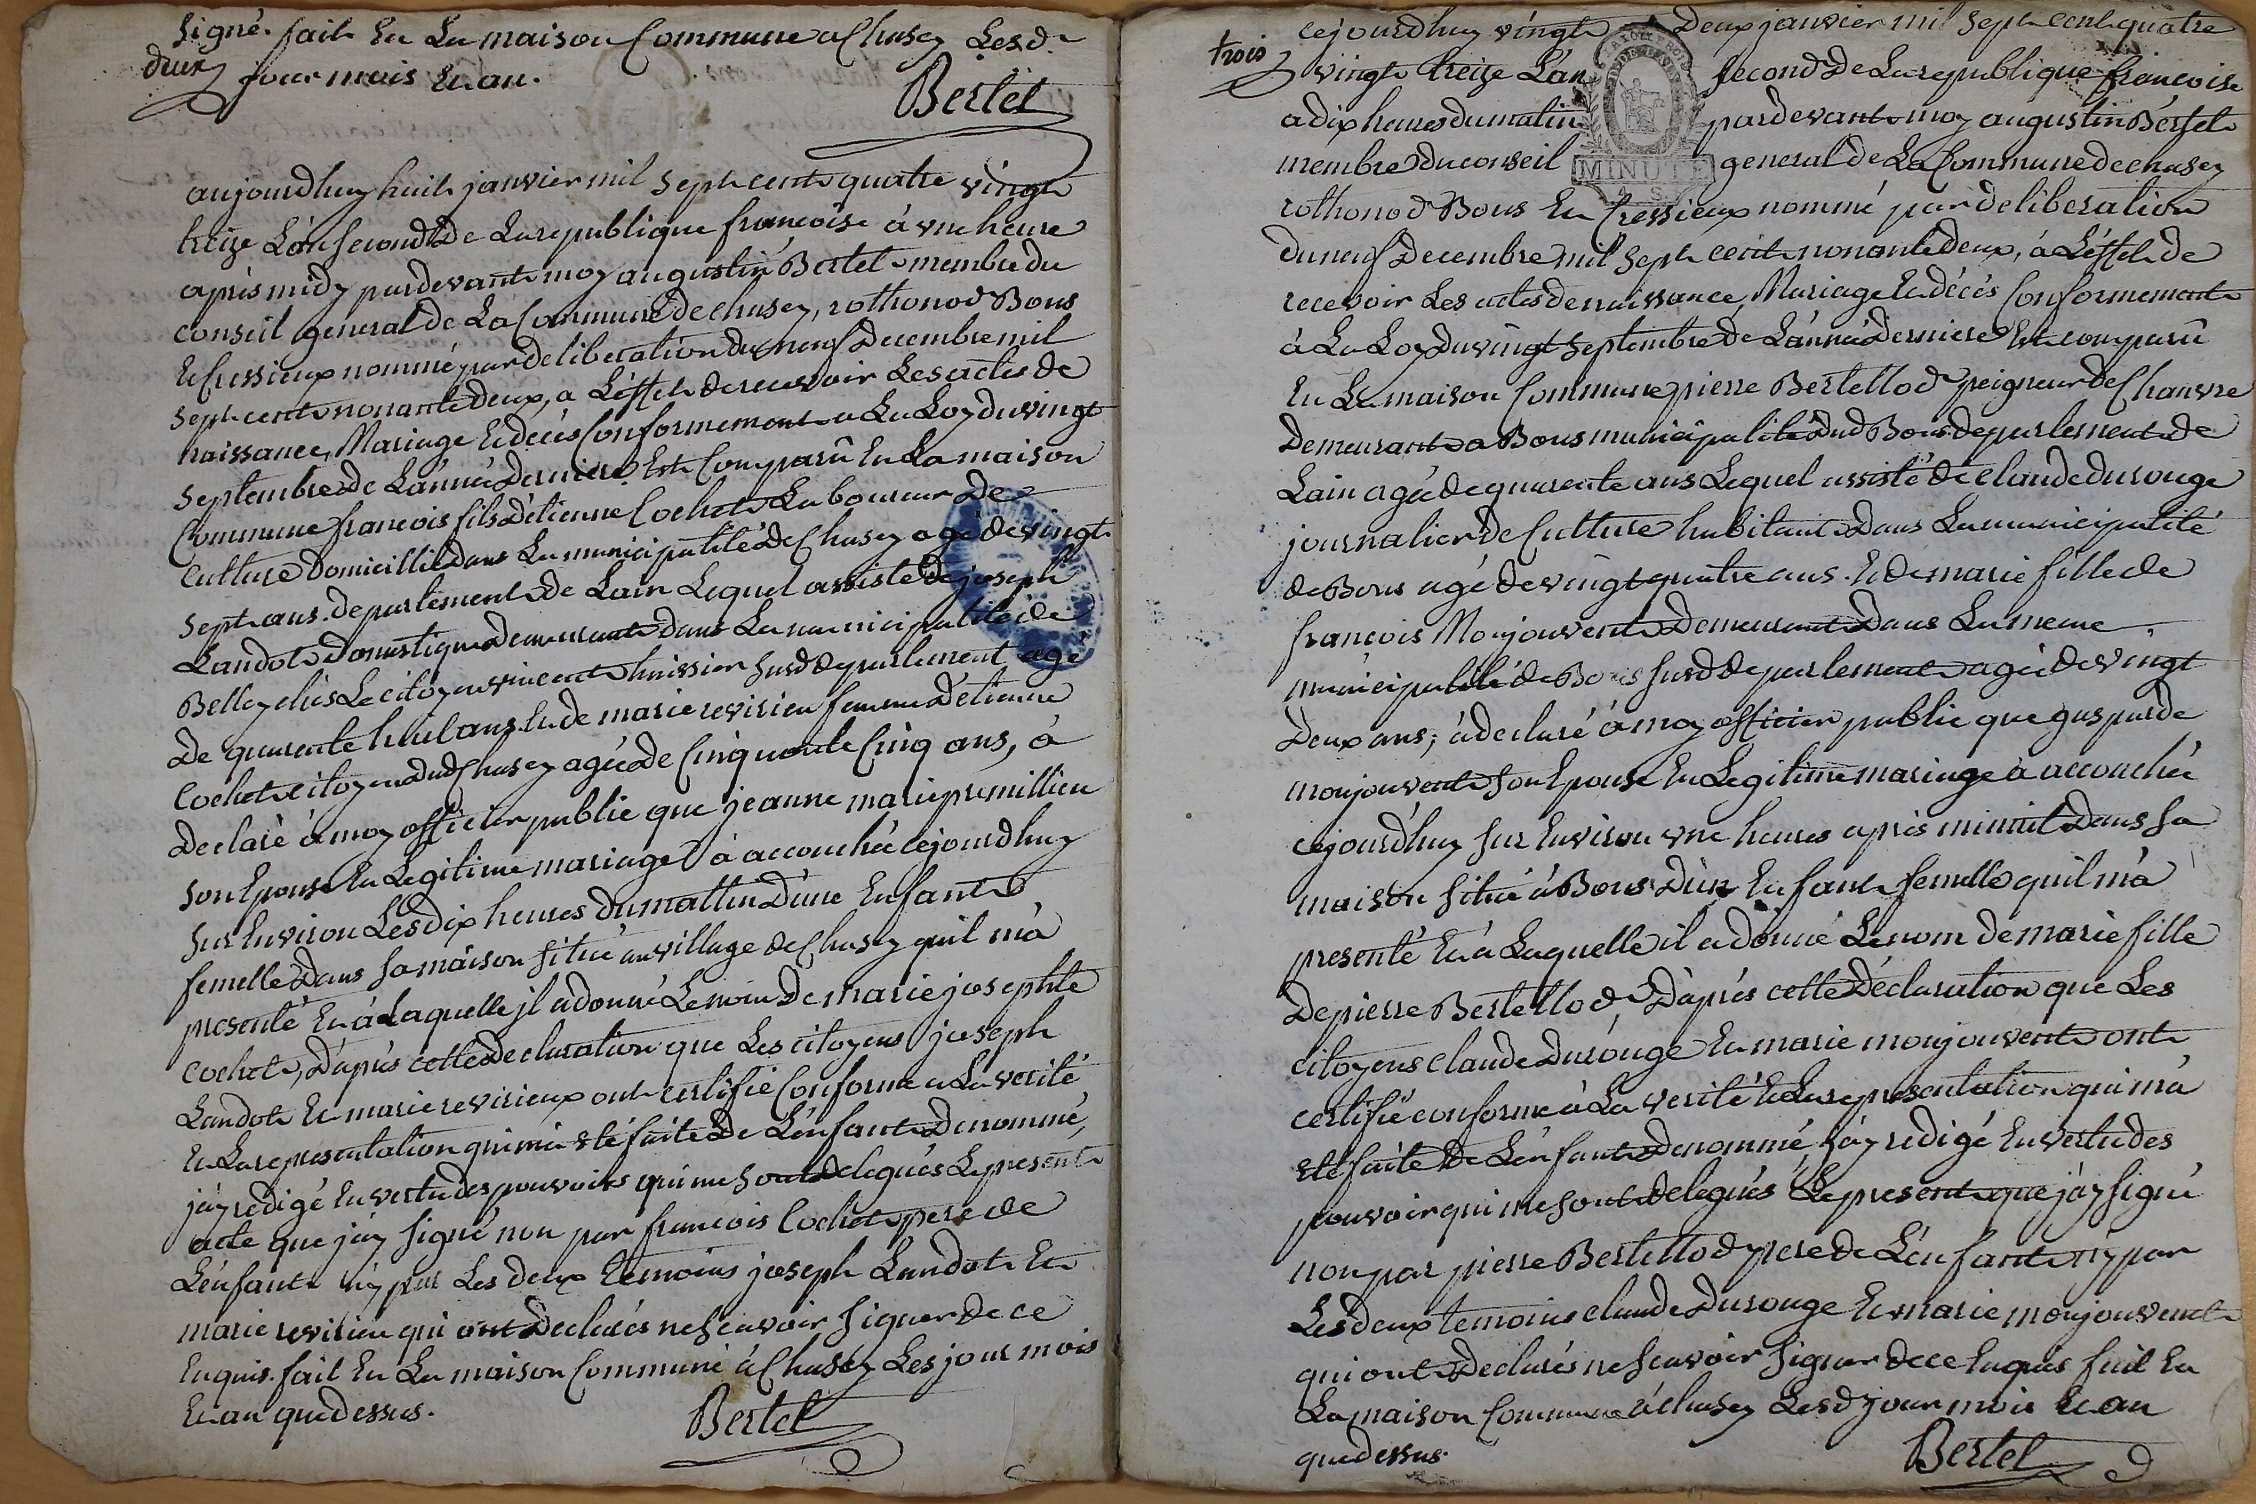 signé. fait En La maison Commune a Chasey Lesd.
deux
jour mois Et an.
Bertet
aujourdhuy huit janvier mil sept cent quatre vingt
treize L'an second De La republique francoise à une heure
après midy pardevant moy augustin Bertet membre du
conseil general de La Commune de chasey, rothonod Bons
Et Cressieux nommé par deliberation du neuf Decembre mil
sept cent nonante deux, a L'effet de recevoir Les actes de
naissance, Mariage Et décés Conformement a La Loy du vingt
septembre de L'année Derniere Est Comparû En La maison
Commune francois fils d'étienne Cochet Laboureur De
Culture Domicillié dans La municipalité de Chasey agé de vingt
sept ans. departement de Lain Lequel assisté de joseph
Landot Domestique demeurant dans La municipalité de
Belley chés Le citoyen vincent huissier susd departement agé
De quarente huit ans. Et de marie revirieu femme D'étienne
Cochet citoyen dud Chasey agée de Cinquante Cinq ans, à
Declaré à moy officier public que jeanne marie premillieu
son Epouse En Legitime mariage à accouchée cejourdhuy
sur Environ Les dix heures du mattin D'une Enfant
femelle dans sa maison située au village de Chasey quil m'à
presenté Et à Laquelle jl a donné Le nom De marie josephte
Cochet, D'après cette declaration que Les citoyens joseph
Landot Et marie revirieux ont certifié Conforme a La verité
Et La representation qui m'a eté faite de L'enfant denommé,
j'ay redigé En vertu des pouvoirs qui me sont delegués Le present
acte que j'ay signé non par francois Cochet pere de
L'enfant ny par Les deux temoins joseph Landot Et
marie revirieu qui ont declarés ne scavoir signer de ce
Enquis. fait En La maison Commune à Chasey Les jour mois
Et an que dessus.
Bertet
trois
cejourdhuy vingt Deux janvier mil sept cent quatre
vingt treize L'an second De La republique francoise
a dix heures du matin pardevant moy augustin Bertet
membre du conseil general de La Commune de chasey
MINUTE
4 S.
rothonod Bons Et Cressieux nommé par deliberation
du neuf Decembre mil sept cent nonante deux, à L'effet de
recevoir Les actes de naissance, Mariage Et décés Conformement
à La Loy du vingt septembre de L'année Derniere Est comparû
En La maison Commune pierre Bertellod peigneur de Chanvre
Demeurant a Bons municipalité dud Bons. departement de
Lain agée de quarente ans Lequel assisté de claude durouge
journalier de Culture habitant dans La municipalité
de Bons agé de vingt quatre ans. Et de marie fille de
françois Monjouvent Demeurant Dans La meme
municipalité de Bons susd departement agée de vingt
Deux ans; à declaré à moy officier public que gasparde
monjouvent son Epouse En Legitime mariage à accouchée
cejourd'huy sur Environ une heures après minuit Dans sa
maison située à Bons D'un Enfant femelle quil m'à
presenté Et à Laquelle il a donné Le nom de marie fille
De pierre Bertellod, D'après cette Déclaration que Les
citoyens claude Durouge Et marie monjouvent ont
certifié conforme à La verité Et La representation qui m'à
eté faite De L'enfant denommé, j'ay redigé En vertu des
pouvoir qui me sont delegués Le present que j'ay signé
non par pierre Bertellod pere de L'enfant ny par
Les deux temoins claude Durouge Et marie monjouvent
qui ont Declarés ne scavoir signer de ce Enquis fait En
La maison Commune à chasey Lesd jour mois Et an
que dessus.
Bertet